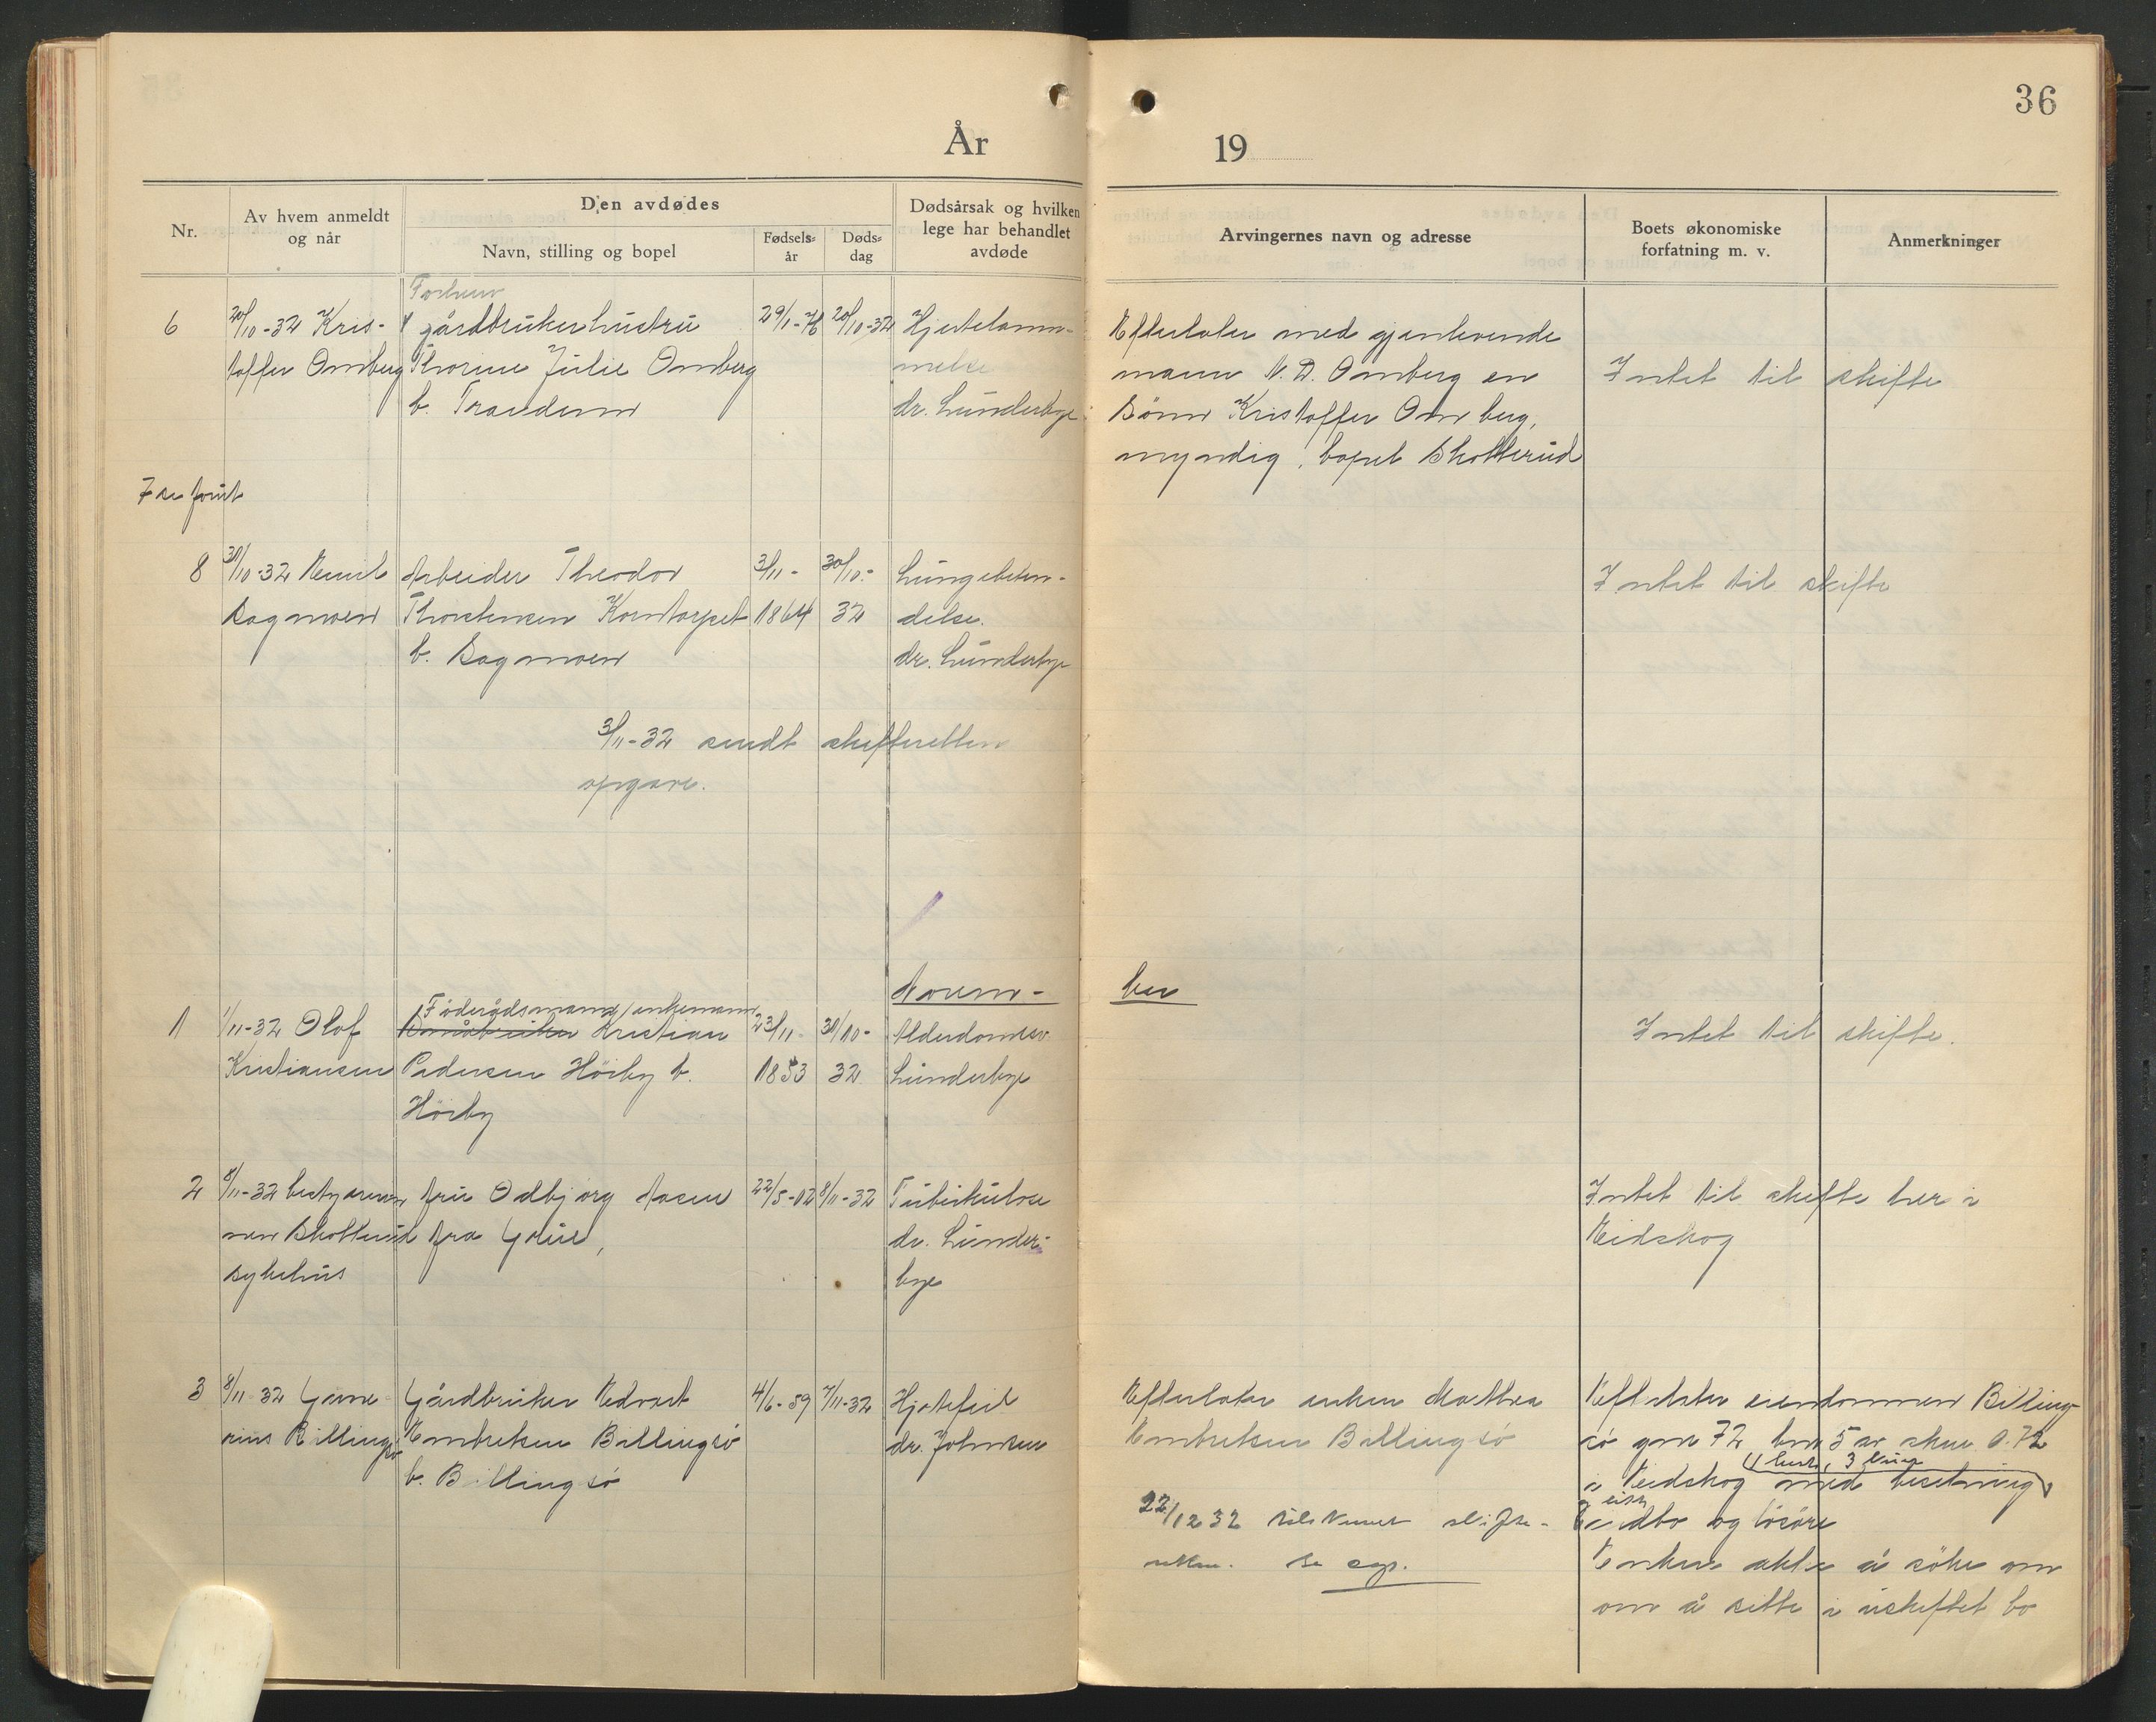 36
År
19
Nr.
Av hvem anmeldt
og når
Den avdødes
Navn, stilling og bopel
Fødsels-
år
Døds-
dag
Dødsårsak og hvilken
lege har behandlet
avdøde
Arvingernes navn og adresse
Boets økonomiske
forfatning m. v.
Anmerkninger
6
20/10-32 Kris-
toffer Omberg
Forhenv
gårdbrukerhustru
Thorine Julie Omberg
b.
29/1-76
20/10-32
Hjertelam-
melse
dr. Lunderbye
Efterlater med gjenlevende
mann N. D. Omberg en
sønn Kristoffer Omberg,
myndig, bopel Skotterud
Intet til skifte
7 se forut
8
30/10-32
Sagmoen
Arbeider Theodor
Thorstensen Korntorpet
b. Sagmoen
3/11-
1864
30/10-
32
Lungebeten-
delse.
dr. Lunderbye
Intet til skifte
3/11-32 sendt skifteretten
opgave.
Novem-
ber
1
1/11-32 Olof
Kristiansen
Föderådsmann/enkemann
Kristian
Pedersen Höiby b.
Höiby
23/11-
1853
30/10-
32
Alderdomssv.
Lunderbye
Intet til skifte.
2
8/11-32 bestyrerin-
nen Skotterud
sykehus
fru Odbjørg Aasen
fra Grue,
22/5-02
8/11-32
Tuberkulose
dr. Lunder-
bye
Intet til skifte her i
Eidskog
3
8/11-32
Billingsö
Gårdbruker Edvart
Embretsen Billingsö
b. Billingsö
4/6-59
7/11-32
Hjertefeil
dr. Johnsen
Efterlater enken Mathea
Embretsen Billingsö
22/12 32 tilskrevet skifte-
retten. Se
Efterlater eiendommen Billing-
sö gnr 72 bnr 5 av skm. 0.72
(1 hest, 3 kuer
i Eidskog med besetning
og løsøre
Enken akter å söke om
om å sitte i uskiftet bo